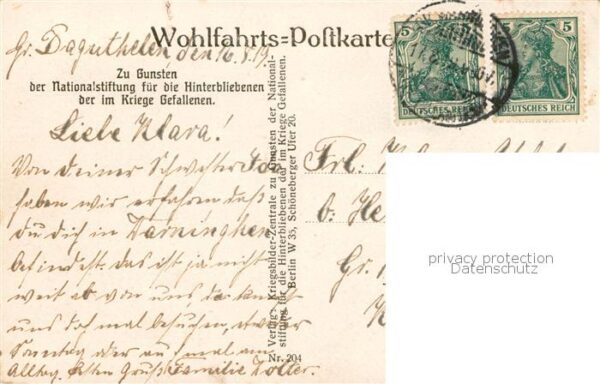 Gr. Baguthelen den 16.8.19.
Wohlfahrts=Postkarte
Zu Gunsten
der Nationalstiftung für die Hinterbliebenen
der im Kriege Gefallenen.
Liebe Klara!
Von deiner Schwester Ida
haben wir erfahren daß
du dich in
befindest das ist ja nicht
weit ab von uns da kannst
uns doch mal besuchen,
Sonntag oder auf mal am
Alltag. Gruß Emilie
Verlag: Kriegsbilder-Zentrale zu Gunsten der National-
stiftung für die Hinterbliebenen der im Kriege Gefallenen.
Berlin W 35, Schöneberger Ufer 20.
Nr. 204
5
DEUTSCHES REICH
5
DEUTSCHES REICH
Frl.
b.
Gr.
privacy protection
Datenschutz